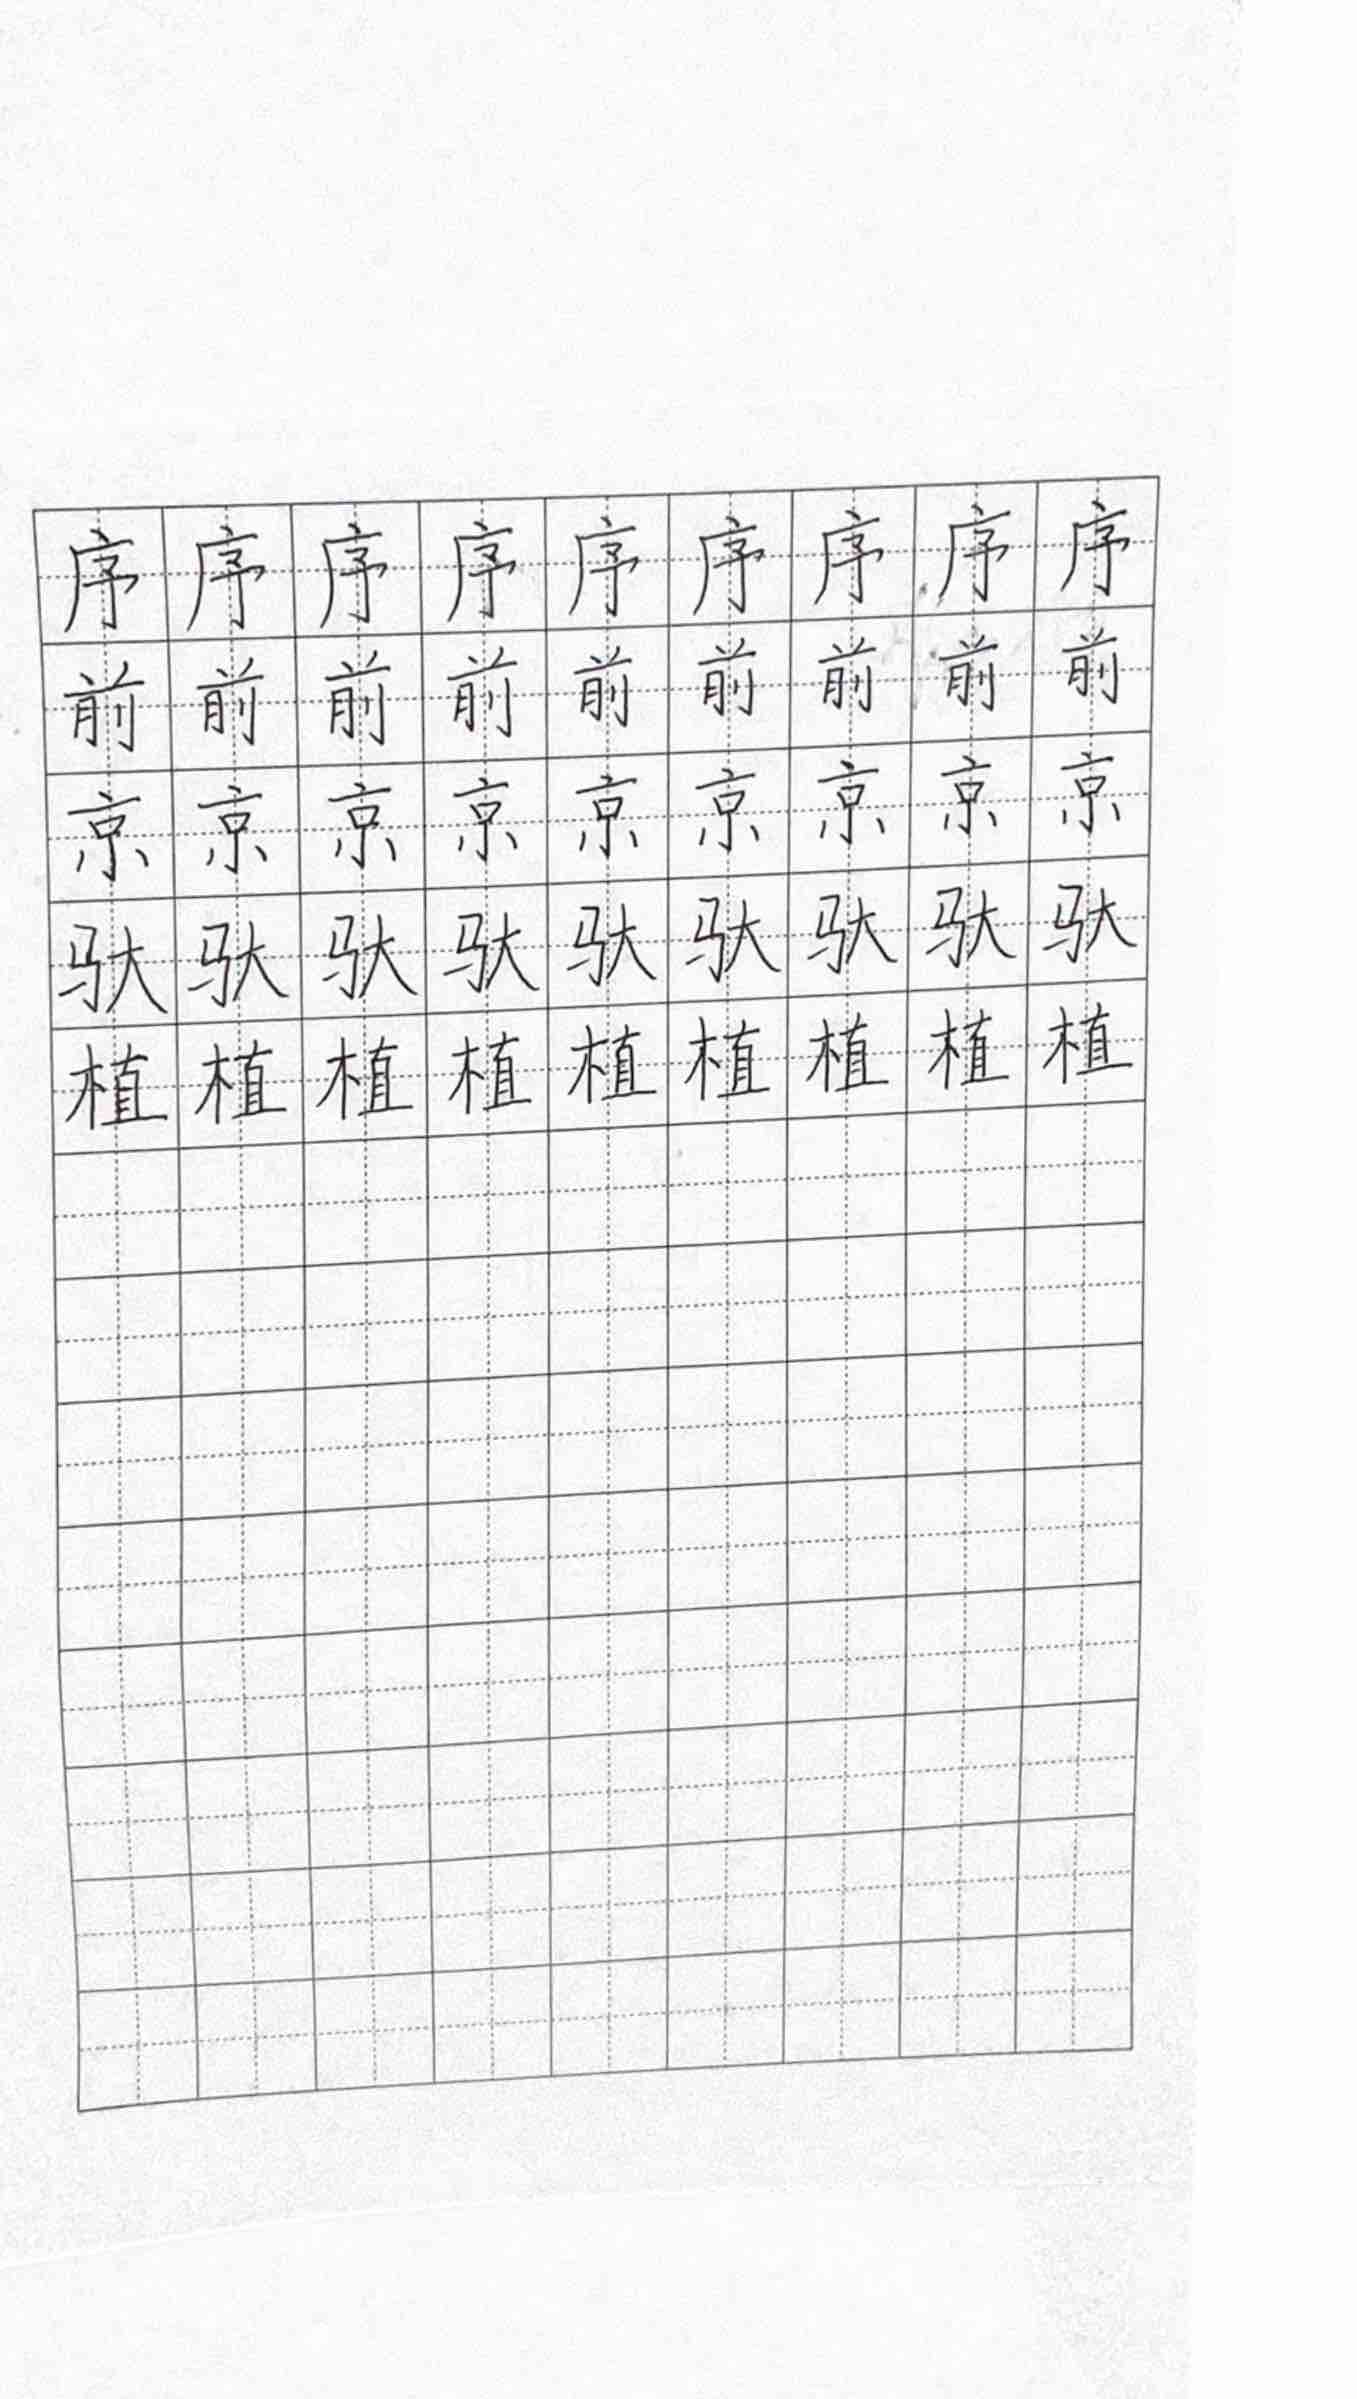 序序序序序序序序序
前前前前前前前前前
京京京京京京京京京
驮驮驮驮驮驮驮驮驮
植植植植植植植植植